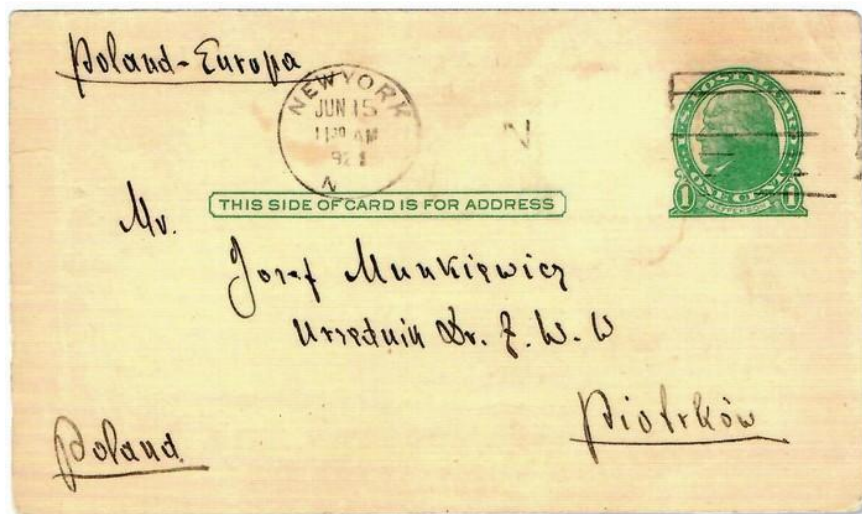 Poland-Europa
NEW YORK
JUN 15
11 30 AM
192
N
U.S. POSTAL CARD
ONE CENT
1 1
JEFFERSON
THIS SIDE OF CARD IS FOR ADDRESS
Mr.
Josef Munkiewicz
Urzędnik Dr. Ż. W. W
Piotrków
Poland